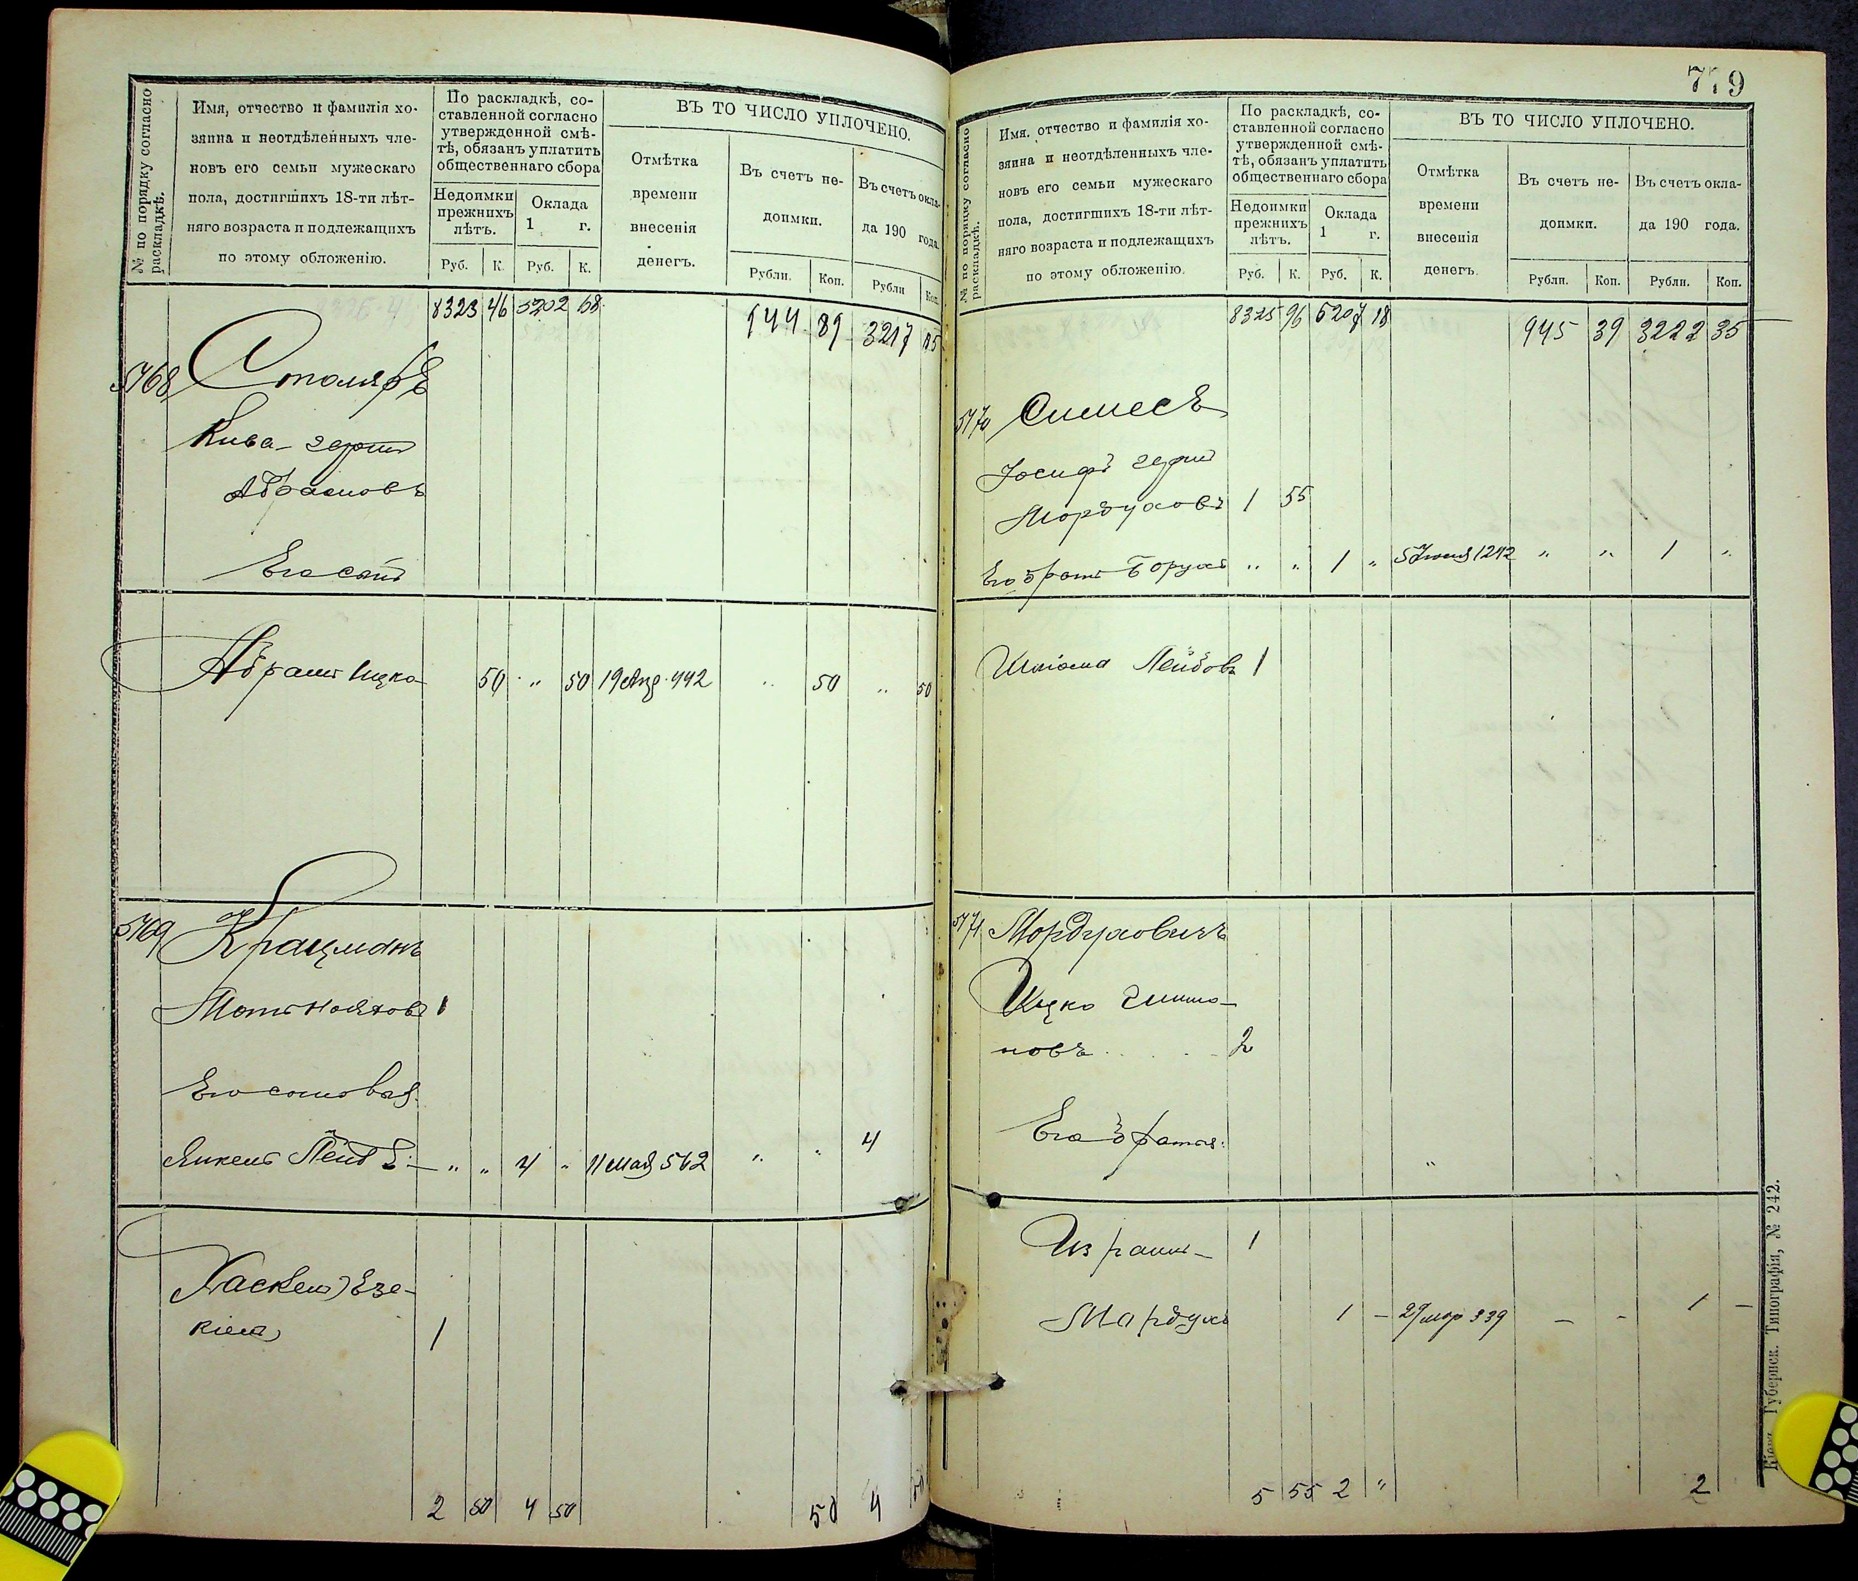 № по порядку согласно
раскладкѣ.
Имя, отчество и фамилія хо-
зяина и неотдѣленныхъ чле-
новъ его семьи мужескаго
пола, достигшихъ 18-ти лѣт-
няго возраста и подлежащихъ
по этому обложенію.
По раскладкѣ, со-
ставленной согласно
утвержденной смѣ-
тѣ, обязанъ уплатить
общественнаго сбора
Недоимки
прежнихъ
лѣтъ.
Оклада
1 г.
Руб. К. Руб. К.
ВЪ ТО ЧИСЛО УПЛОЧЕНО.
Отмѣтка
времени
внесенія
денегъ.
Въ счетъ не-
доимки.
Въ счетъ окла-
да 190 года.
Рубли. Коп. Рубли Коп.
8323 46 5202 68 944 89 3217 85
5768 Столяръ
Кива-герш
Абрамовъ
Его сын
Абрам Ицко 50 " 50 19 Апр. 442 " 50 " 50
5769 Крацманъ
Мот Нояхов 1
Его сыновья
Янкель Лейб " " 4 " 11 мая 562 " " 4
Хаскель) Езе-
кіель 1
2 50 4 50 50 4 50
779
№ по порядку согласно
раскладкѣ.
Имя, отчество и фамилія хо-
зяина и неотдѣленныхъ чле-
новъ его семьи мужескаго
пола, достигшихъ 18-ти лѣт-
няго возраста и подлежащихъ
по этому обложенію.
По раскладкѣ, со-
ставленной согласно
утвержденной смѣ-
тѣ, обязанъ уплатить
общественнаго сбора
Недоимки
прежнихъ
лѣтъ.
Оклада
1 г.
Руб. К. Руб. К.
ВЪ ТО ЧИСЛО УПЛОЧЕНО.
Отмѣтка
времени
внесенія
денегъ.
Въ счетъ не-
доимки.
Въ счетъ окла-
да 190 года.
Рубли. Коп. Рубли. Коп.
8325 96 5207 18 945 39 3222 35
5770 Симесъ
Іосифъ герш
Мордуховъ 1 55
Его брат Борух " " 1 " 1242 " " 1 "
Шліома Лейбовъ 1
5771 Мордуховичъ
Ицко Зимно-
новъ 2
Его братья:
"
Израиль 1
Мордухъ 1 - 29 мар 339 - - 1 -
5 55 2 " 2
Кіевъ. Губернск. Типографія, № 242.